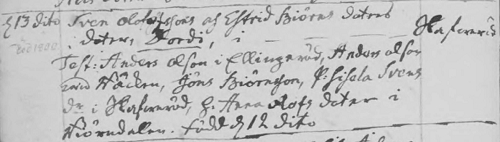 d 13 dito Sven Olofssons och Estrid Biörns doters
i doter, Bordi, i Hafvereröd
Test: Anders Olson i Ellingeröd, Anders Olson
Häcken, Jöns Biörnson, P: Sisela Svens
dr i Hafvereröd, H. Anna Olofs doter i
Hiörndalen. född d 12 dito